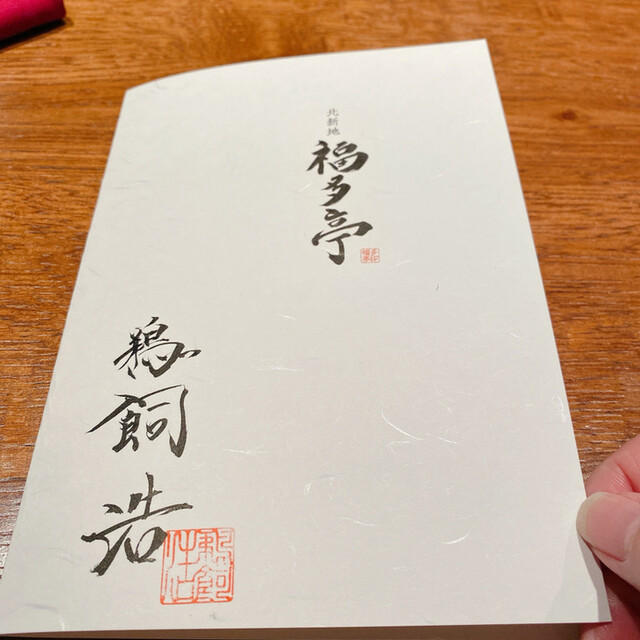 北新地
福多亭
鵜飼
浩